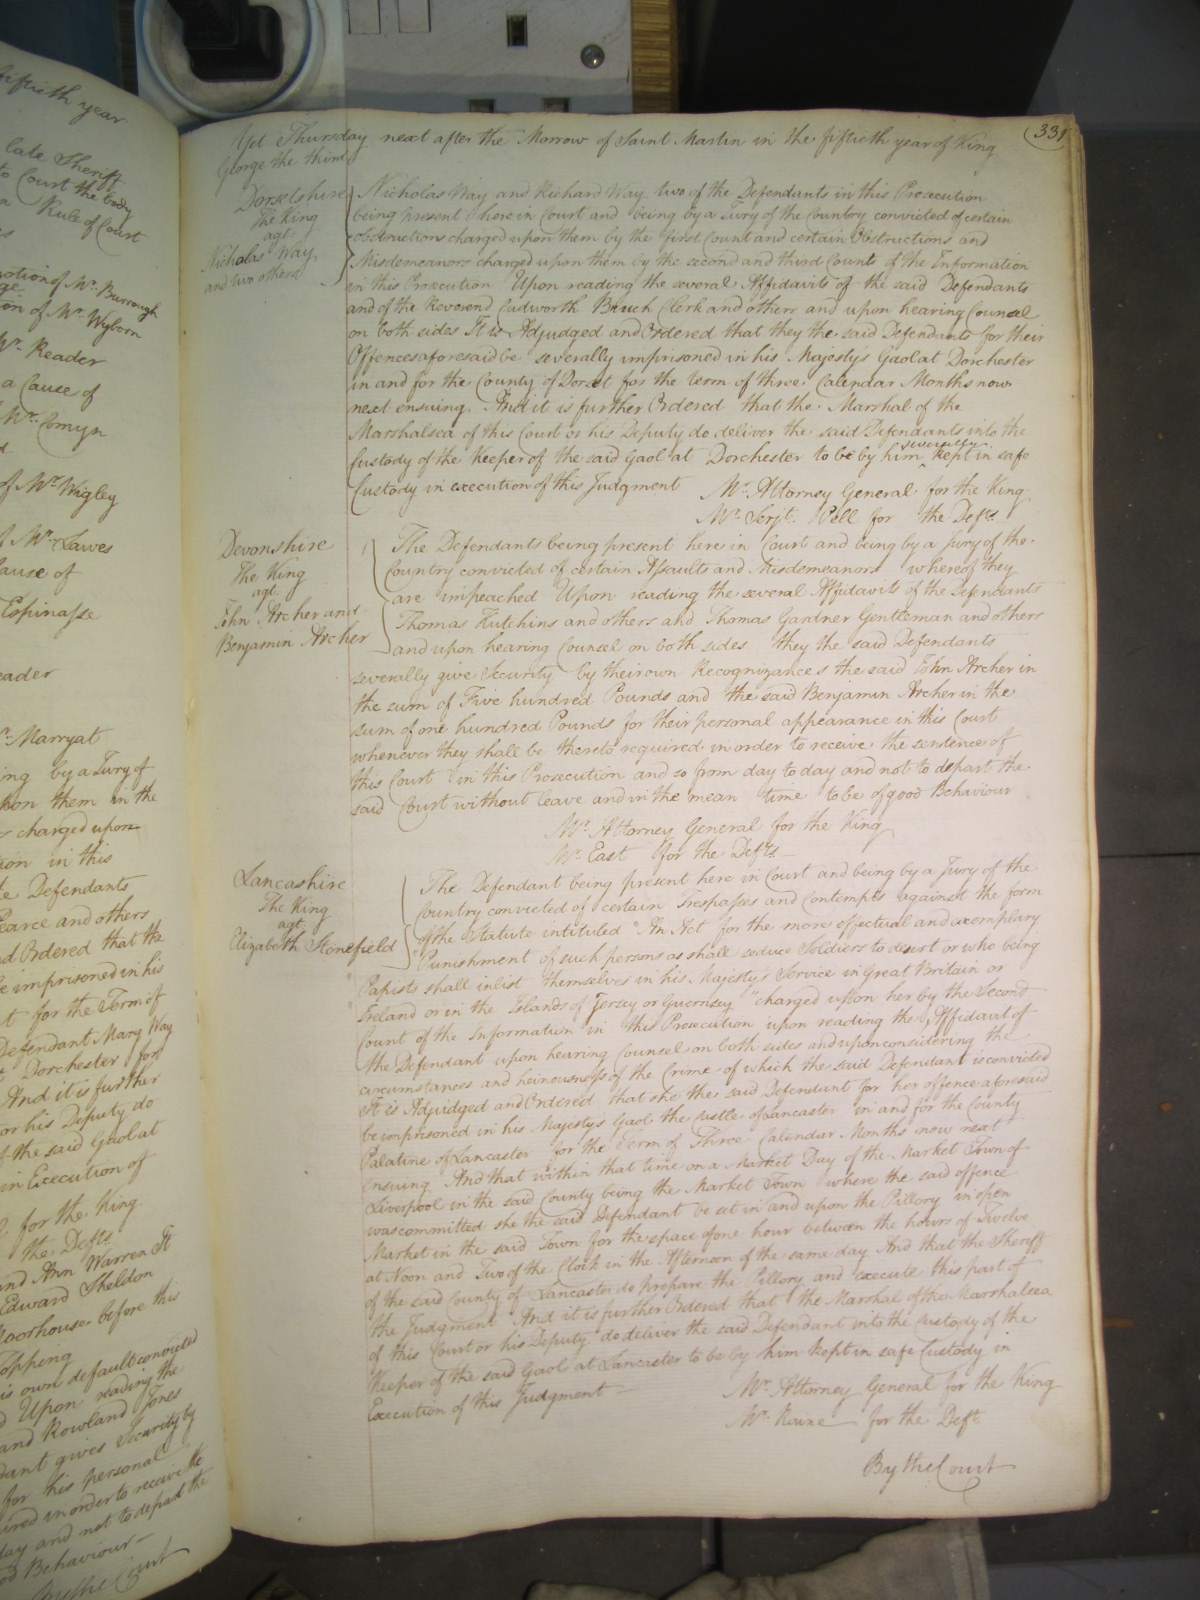 fiftieth year
late Sheriff
to Court the body
a Rule of Court
Motion of Mr. Burrough
ion of Mr. Wyborn
Mr. Reader
a Cause of
Mr. Comyn
of Mr. Wigley
Mr. Lawes
Cause of
Espinasse
eader
Mr. Marryat
ing by a Jury of
upon them in the
charged upon
ion in this
Defendants
Pearce and others
nd Ordered that the
e imprisoned in his
t for the Term of
Defendant Mary Way
Dorchester for
And it is further
or his Deputy do
of the said Gaol at
in Execution of
for the King
the Defts
and Ann Warren It
Edward Sheldon
Moorhouse before this
Topping
is own default convicted
Upon reading the
and Rowland Jones
dant gives Security by
for his personal
uired in order to receive the
day and not to depart the
od Behaviour
By the Court
331
Yet Thursday next after the Morrow of Saint Martin in the fiftieth year of King
George the third
Dorsetshire
The King
agt.
Nicholas Way
and two others
Nicholas Way and Richard Way two of the Defendants in this Prosecution
being present here in Court and being by a Jury of the Country convicted of certain
obstructions charged upon them by the first Count and certain Obstructions and
Misdemeanors charged upon them by the second and third Counts of the Information
in this Prosecution Upon reading the several Affidavits of the said Defendants
and of the Reverend Cudworth Bruch Clerk and others and upon hearing Counsel
on both sides It is Adjudged and Ordered that they the said Defendants for their
Offences aforesaid be severally imprisoned in his Majesty's Gaol at Dorchester
in and for the County of Dorset for the term of three Calendar Months now
next ensuing. And it is further Ordered that the Marshal of the
Marshalsea of this Court or his Deputy do deliver the said Defendants into the
Custody of the Keeper of the said Gaol at Dorchester to be by him severally kept in safe
Custody in execution of this Judgment Mr. Attorney General for the King
Mr. Serjt. Pell for the Defts
Devonshire
The King
agt.
John Archer and
Benjamin Archer
The Defendants being present here in Court and being by a Jury of the
Country convicted of certain Assaults and Misdemeanors whereof they
are impeached Upon reading the several Affidavits of the Defendants
Thomas Hutchins and others and Thomas Gardner Gentleman and others
and upon hearing Counsel on both sides they the said Defendants
severally give Security by their own Recognizances the said John Archer in
the sum of Five hundred Pounds and the said Benjamin Archer in the
sum of one hundred Pounds for their personal appearance in this Court
whenever they shall be thereto required in order to receive the sentence of
this Court in this Prosecution and so from day to day and not to depart the
said Court without leave and in the mean time to be of good Behaviour
Mr. Attorney General for the King
Mr. East for the Defts
Lancashire
The King
agt.
Elizabeth Stonefield
The Defendant being present here in Court and being by a Jury of the
Country convicted of certain Trespasses and Contempts against the form
of the Statute intituled "An Act for the more effectual and exemplary
"Punishment of such persons as shall seduce Soldiers to desert or who being
Papists shall inlist themselves in his Majesty's Service in Great Britain or
Ireland or in the Islands of Jersey or Guernsey" charged upon her by the Second
Count of the Information in this Prosecution upon reading the Affidavit of
the Defendant upon hearing Counsel on both sides and upon considering the
circumstances and heinousness of the Crime of which the said Defendant is convicted
It is Adjudged and Ordered that she the said Defendant for her offence aforesaid
be imprisoned in his Majesty's Gaol the Castle of Lancaster in and for the County
Palatine of Lancaster for the Term of Three Calendar Months now next
ensuing And that within that time on a Market Day of the Market Town of
Liverpool in the said County being the Market Town where the said offence
was committed she the said Defendant be set in and upon the Pillory in open
Market in the said Town for the space of one hour between the hours of Twelve
at Noon and Two of the Clock in the Afternoon of the same day And that the Sheriff
of the said County of Lancaster do prepare the Pillory and execute this part of
the Judgment And it is further Ordered that the Marshal of the Marshalsea
of this Court or his Deputy do deliver the said Defendant into the Custody of the
Keeper of the said Gaol at Lancaster to be by him kept in safe Custody in
Execution of this Judgment
Mr. Attorney General for the King
Mr. Raine for the Deft
By the Court